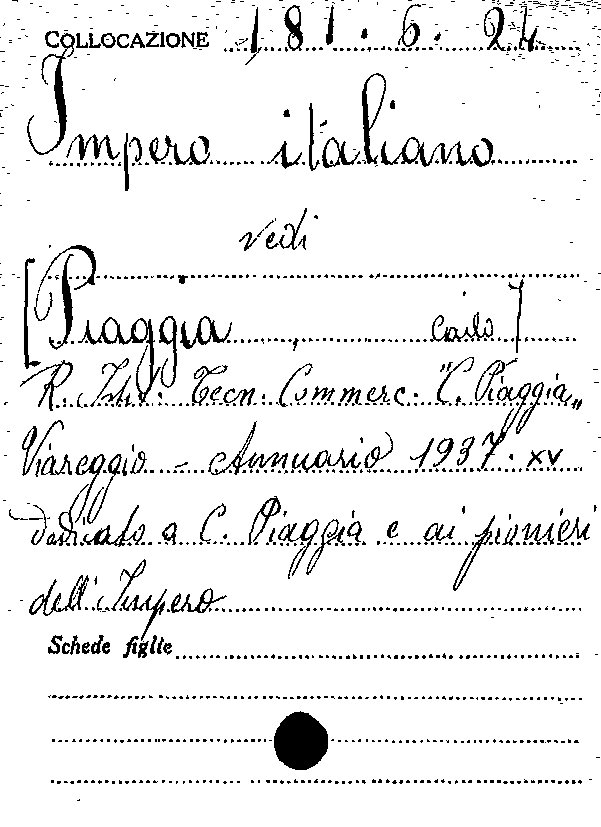 COLLOCAZIONE 181.6.24
Impero italiano
vedi
[Piaggia, Carlo]
R. Istit. Tecn. Commerc. "C. Piaggia"
Viareggio - Annuario 1937. XV
dedicato a C. Piaggia e ai pionieri
dell'Impero
Schede figlie